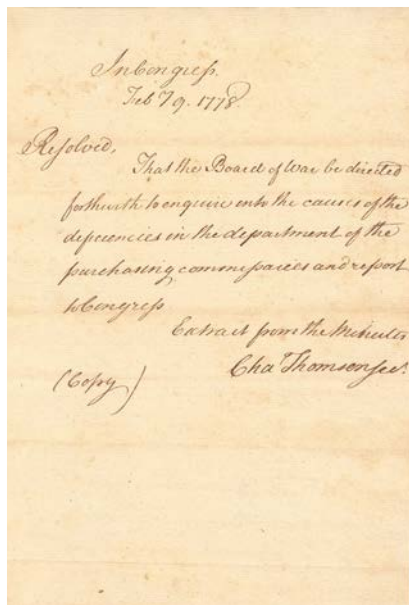 In Congress.
Feby 9. 1778.
Resolved,
That the Board of War be directed
forthwith to enquire into the causes of the
deficiencies in the department of the
purchasing commissaries and report
to Congress
Extract from the Minutes
Chas Thomson Secy.
(Copy)